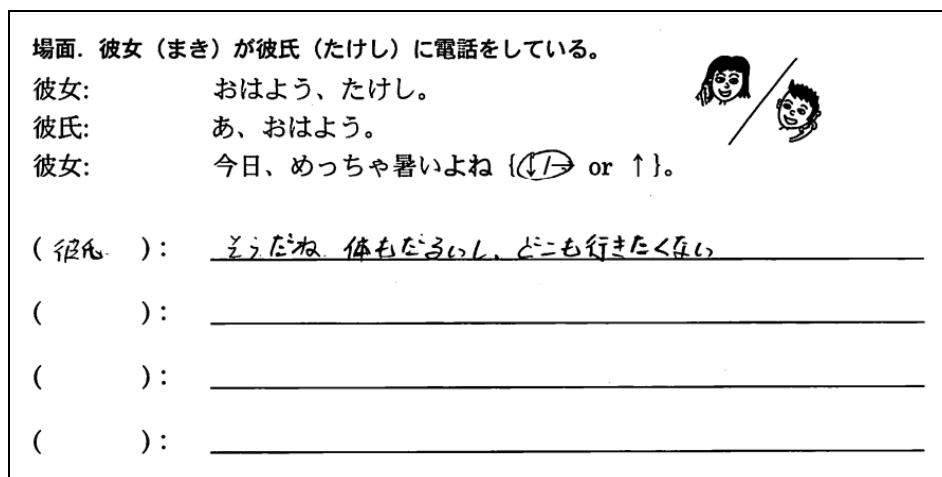 場面. 彼女（まき）が彼氏（たけし）に電話をしている。
彼女: おはよう、たけし。
彼氏: あ、おはよう。
彼女: 今日、めっちゃ暑いよね {↓/→ or ↑}。
( 彼氏 ): そうだね 体もだるいし、どこも行きたくない
( ):
( ):
( ):